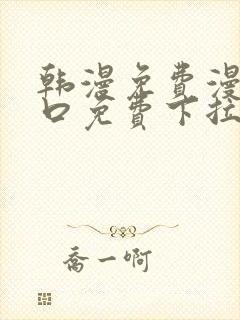 韩漫免费漫
口免费下拉
乔一啊